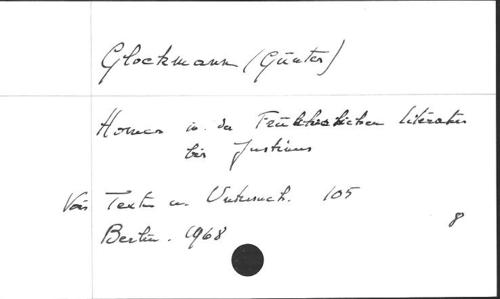 Glockmann (Günter)
Homer in der Frühchristlichen Literatur
bis Justinus
Voir Texte u. Untersuch. 105
Berlin. 1968
8